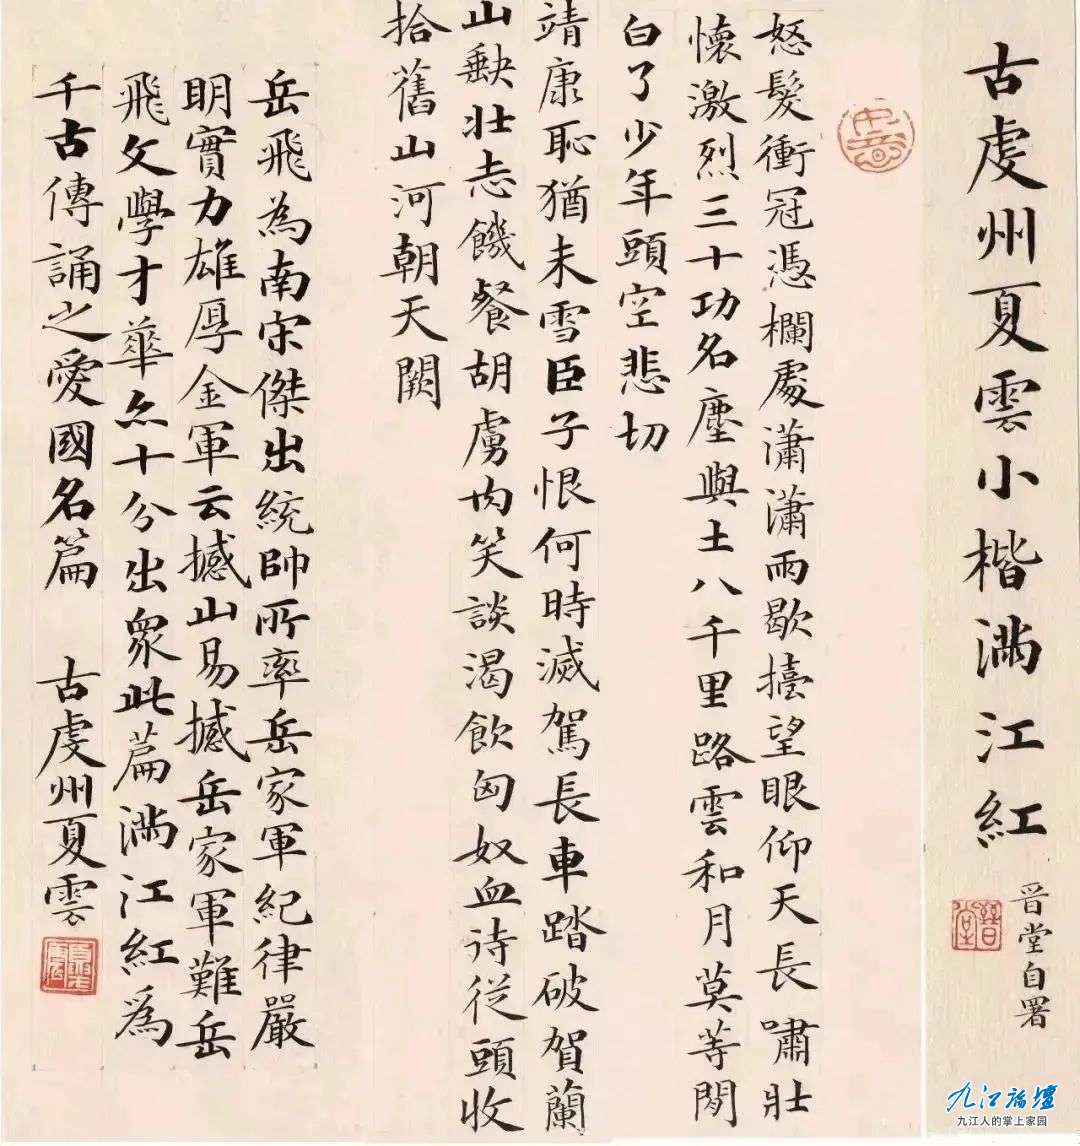 古虔州夏雲小楷滿江紅
晉堂自署
怒髮衝冠憑欄處瀟瀟雨歇擡望眼仰天長嘯壯
懷激烈三十功名塵與土八千里路雲和月莫等閒
白了少年頭空悲切
靖康恥猶未雪臣子恨何時滅駕長車踏破賀蘭
山缺壯志饑餐胡虜肉笑談渴飲匈奴血待從頭收
拾舊山河朝天闕
岳飛為南宋傑出統帥所率岳家軍紀律嚴
明實力雄厚金軍云撼山易撼岳家軍難岳
飛文學才華亦十分出眾此篇滿江紅為
千古傳誦之愛國名篇 古虔州夏雲
九江論壇
九江人的掌上家园